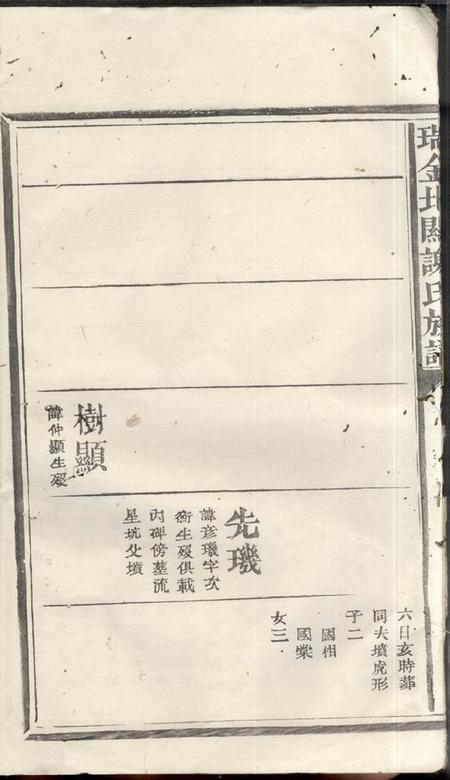 瑞金北關謝氏族譜
六日亥時葬
同夫墳虎形
子二
國相
國棠
女三
先璣
諱彥璣字次
衡生歿俱載
内碑傍葬流
星坑父墳
樹顯
諱仲顯生歿